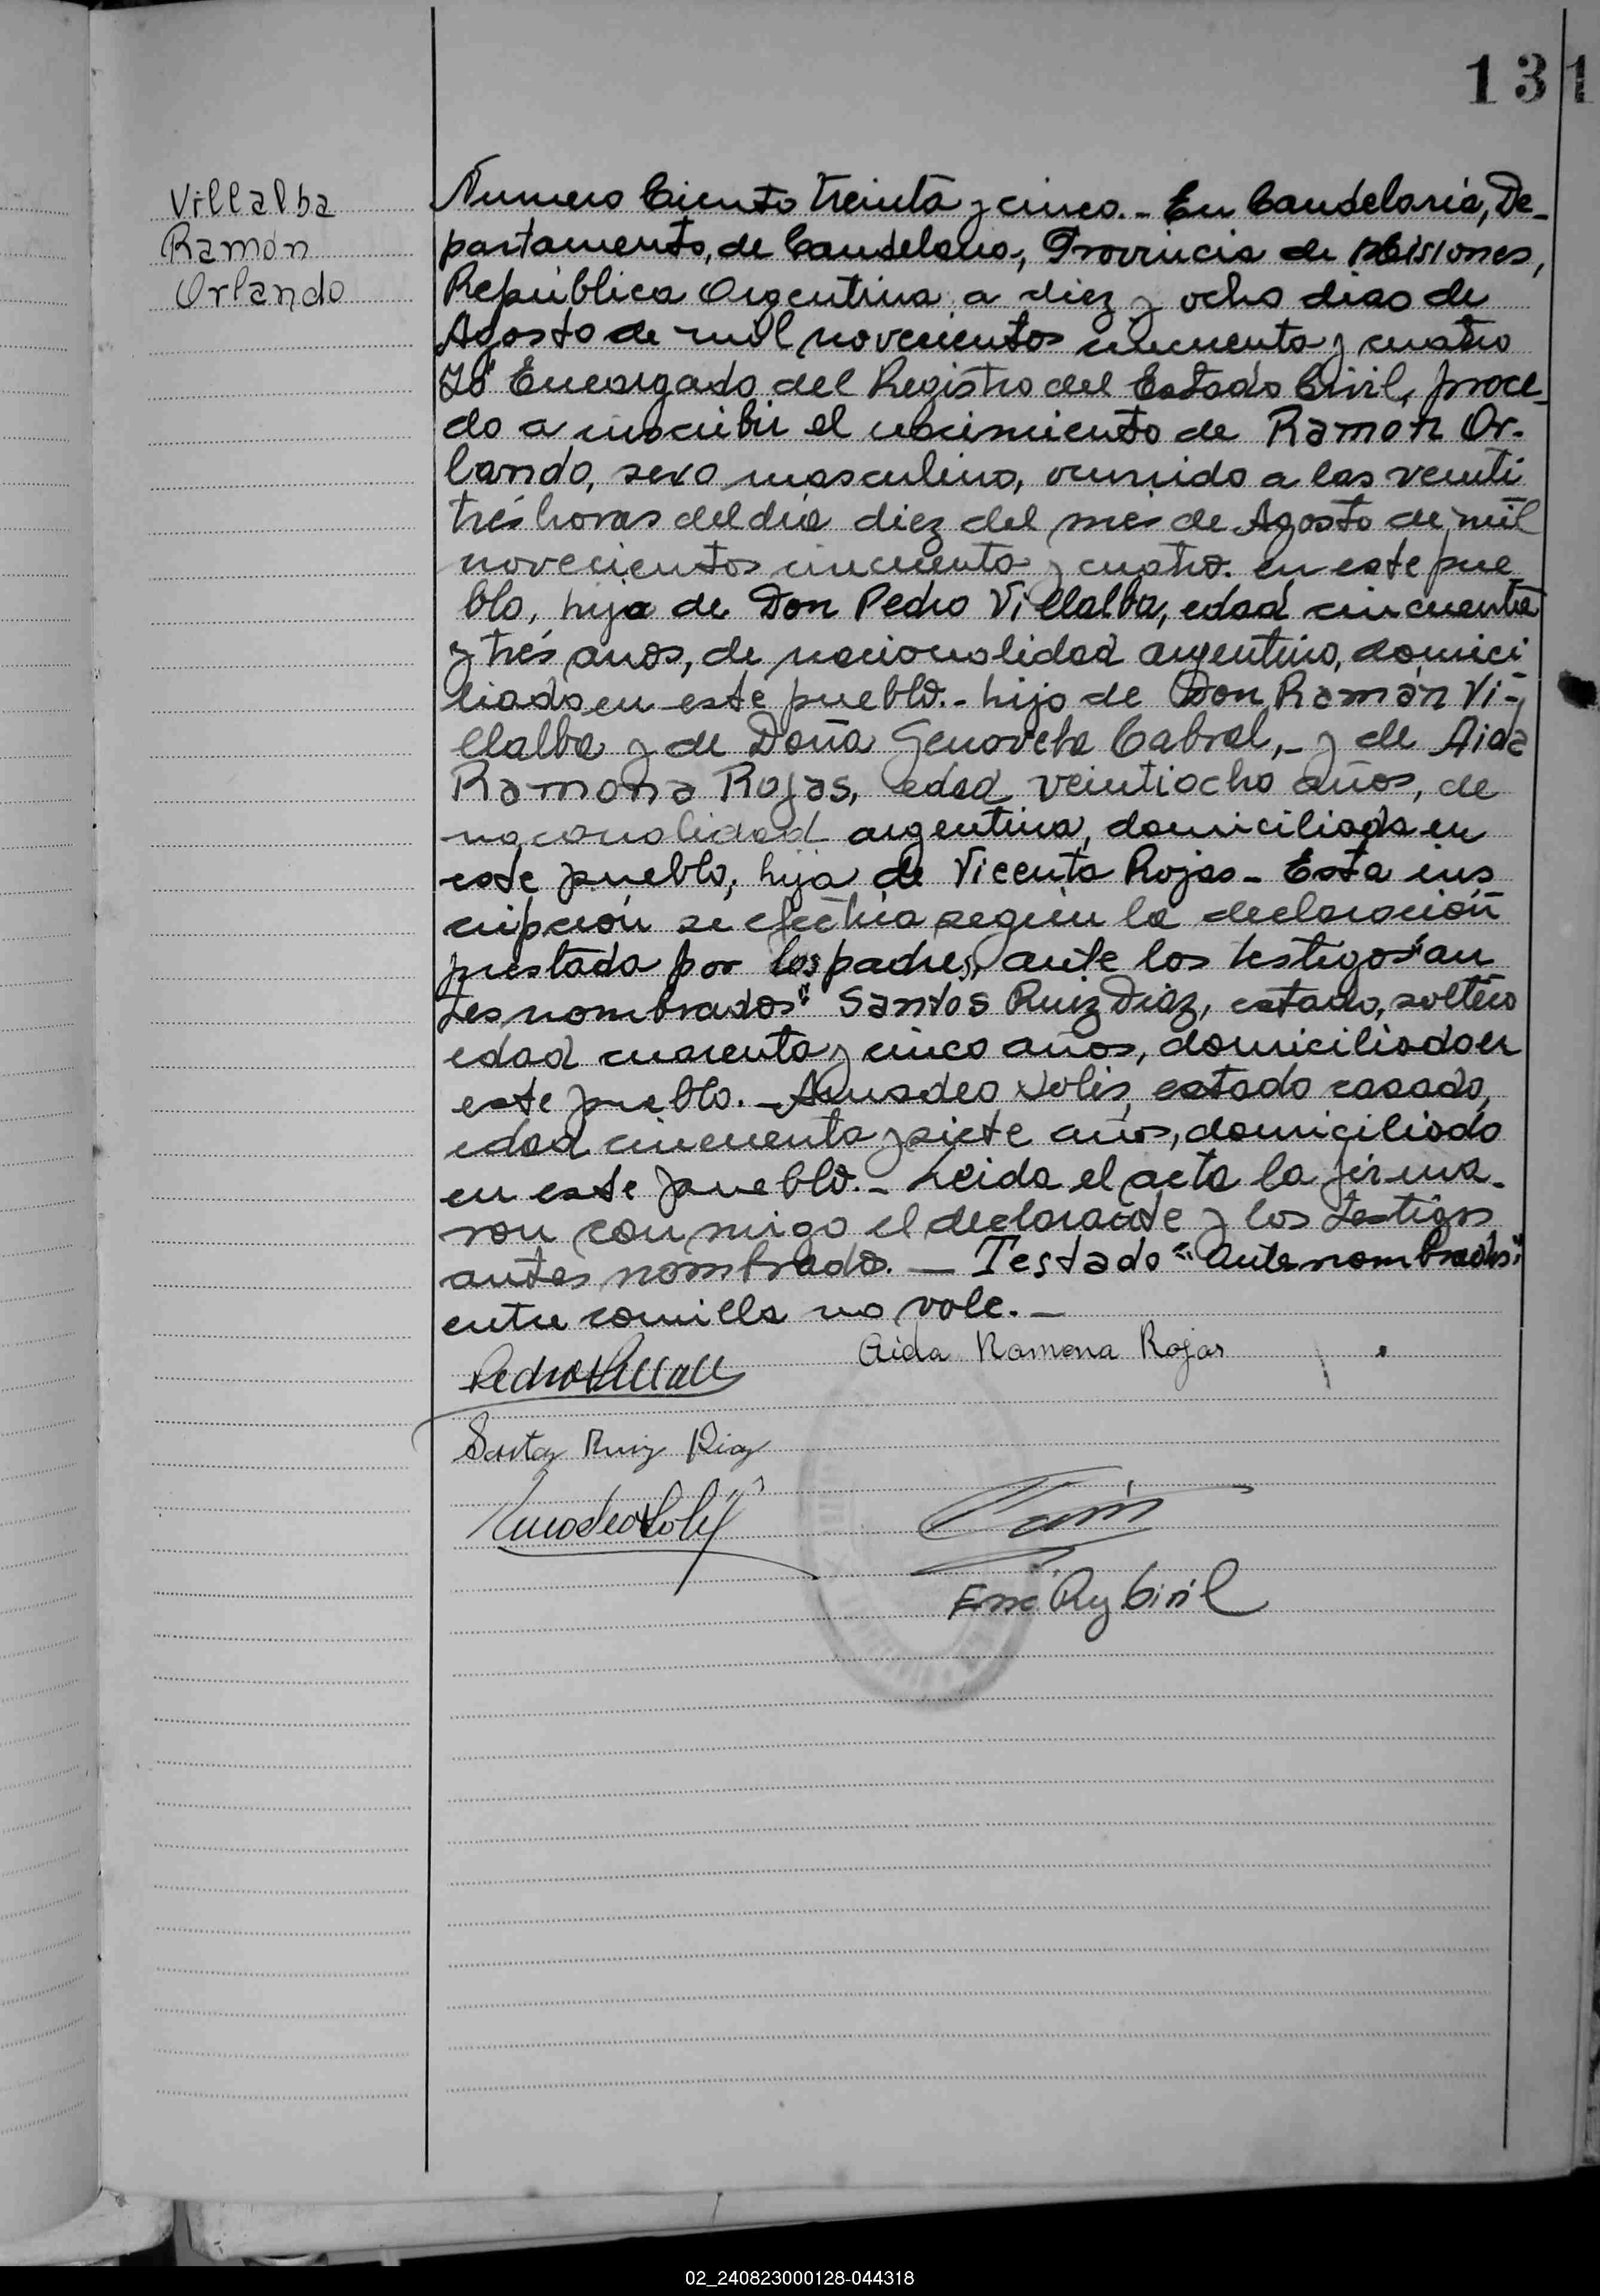 131
Villalba
Ramón
Orlando
Numero Ciento treinta y cinco.- En Candelaria, De-
partamento, de Candelaria, Provincia de Misiones,
República Argentina a diez y ocho dias de
Agosto de mil novecientos cincuenta y cuatro
Yo Encargado del Registro del Estado Civil, proce-
do a inscribir el nacimiento de Ramon Or-
lando, sexo masculino, ocurrido a las veinti
trés horas del dia diez del mes de Agosto de mil
novecientos cincuenta y cuatro. en este pue
blo, hijo de Don Pedro Villalba, edad cincuenta
y trés años, de nacionalidad argentino, domici
liado en este pueblo.- hijo de Don Ramón Vi-
llalba y de Doña Genoveta Cabral,- y de Aida
Ramona Rojas, edad veintiocho años, de
nacionalidad argentina, domiciliada en
este pueblo, hija de Vicenta Rojas- Esta ins
cripción se efectúa según la declaración
prestada por los padres, ante los testigos "an
tes nombrados" Santos Ruiz Diaz, estado, soltero
edad cuarenta y cinco años, domiciliado en
este pueblo.- Amadeo Solis, estado casado,
edad cincuenta y siete años, domiciliado
en este pueblo.- Leida el acta la firma-
ron conmigo el declarante y los testigos
antes nombrado.- Testado "antes nombrados"
entre comilla no vale.-
Aida Ramona Rojas
Santos Ruiz Diaz
Amadeo Solis
Civil
02_240823000128-044318